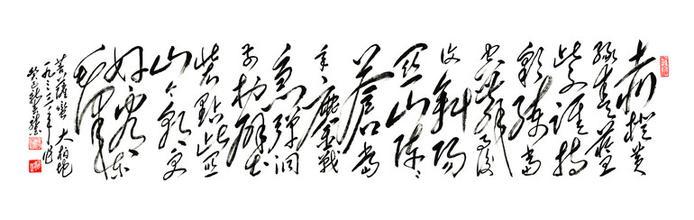 赤橙黄
绿青蓝
紫谁持
彩练当
空舞雨後
复斜阳
关山阵々
苍当
年鏖战
急弹洞
前村壁
装點此関
山今朝更
好看
毛泽东
菩薩蛮 大柏地
一九三三年